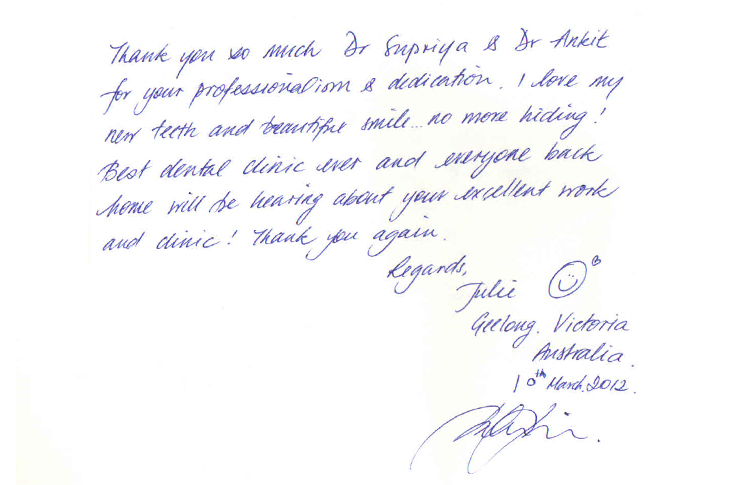 Thank you so much Dr Supriya & Dr Ankit
for your professionalism & dedication. I love my
new teeth and beautiful smile... no more hiding!
Best dental clinic ever and everyone back
home will be hearing about your excellent work
and clinic! Thank you again.
Regards,
Julie
Geelong. Victoria
Australia.
10th March, 2012.